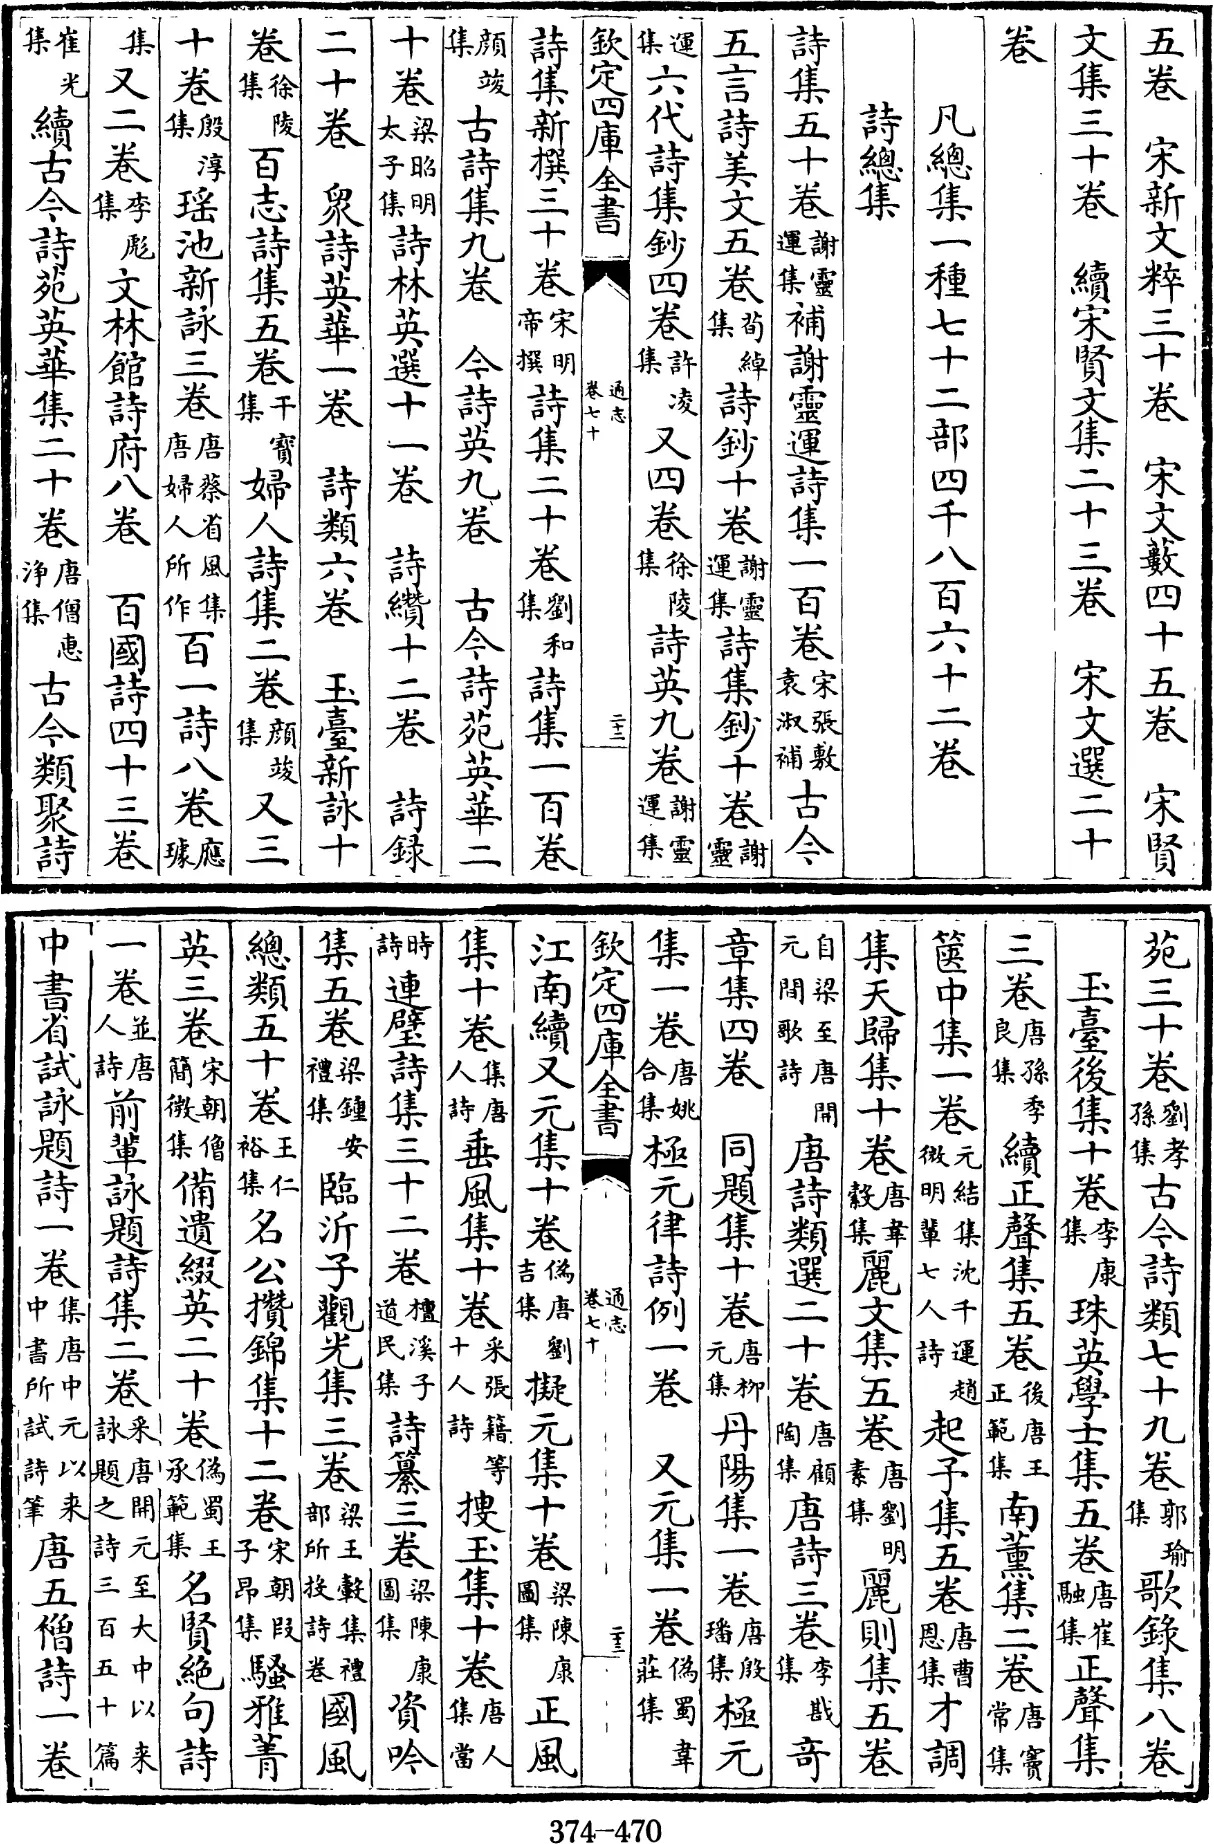 五卷　宋新文粹三十卷　宋文藪四十五卷　宋賢
文集三十卷　續宋賢文集二十三卷　宋文選二十
卷
凡總集一種七十二部四千八百六十二卷
詩總集
詩集五十卷謝靈運集補謝靈運詩集一百卷宋張敷袁淑補古今
五言詩美文五卷荀綽集詩鈔十卷謝靈運集詩集鈔十卷謝靈
運集六代詩集鈔四卷許凌集又四卷徐陵集詩英九卷謝靈運集
欽定四庫全書　通志卷七十　二十二
詩集新撰三十卷宋明帝撰詩集二十卷劉和集詩集一百卷
顔竣集古詩集九卷　今詩英九卷　古今詩苑英華二
十卷梁昭明太子集詩林英選十一卷　詩纘十二卷　詩録
二十卷　衆詩英華一卷　詩類六卷　玉臺新詠十
卷徐陵集百志詩集五卷干寳集婦人詩集二卷顔竣集又三
十卷殷淳集瑶池新詠三卷唐蔡省風集唐婦人所作百一詩八卷應璩
集又二卷李彪集文林館詩府八卷　百國詩四十三卷
崔光集續古今詩苑英華集二十卷唐僧惠浄集古今類聚詩
苑三十卷劉孝孫集古今詩類七十九卷郭瑜集歌錄集八卷
玉臺後集十卷李康集珠英學士集五卷唐崔融集正聲集
三卷唐孫季良集續正聲集五卷後唐王正範集南薰集二卷唐竇常集
篋中集一卷元結集沈千運趙微明輩七人詩起予集五卷唐曹恩集才調
集天歸集十卷唐韋縠集麗文集五卷唐劉明素集麗則集五卷
自梁至唐開元間歌詩唐詩類選二十卷唐顧陶集唐詩三卷李戡集竒
章集四卷　同題集十卷唐柳元集丹陽集一卷唐殷璠集極元
集一卷唐姚合集極元律詩例一卷　又元集一卷偽蜀韋莊集
欽定四庫全書　通志卷七十　二十三
江南續又元集十卷偽唐劉吉集擬元集十卷梁陳康圖集正風
集十卷集唐人詩垂風集十卷采張籍等十人詩搜玉集十卷唐人集當
時詩連璧詩集三十二卷檀溪子道民集詩纂三卷梁陳康圖集資吟
集五卷梁鍾安禮集臨沂子觀光集三卷梁王轂集禮部所投詩卷國風
總類五十卷王仁裕集名公攢錦集十二卷宋朝段子昂集騷雅菁
英三卷宋朝僧簡微集備遺綴英二十卷偽蜀王承範集名賢絶句詩
一卷並唐人詩前輩詠題詩集二卷采唐開元至大中以来詠題之詩三百五十篇
中書省試詠題詩一卷集唐中元以来中書所試詩筆唐五僧詩一卷
374-470